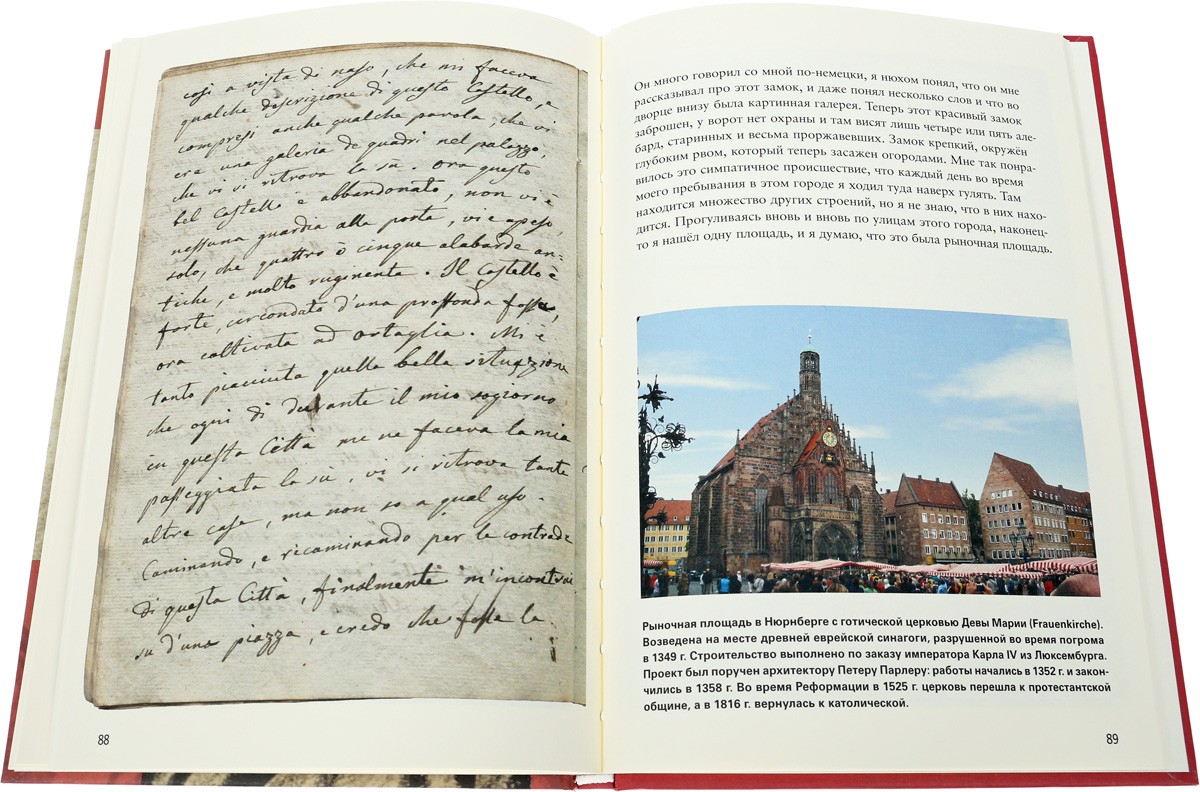 cosi a vista di naso, che mi faceva
qualche discrizione di questo Castello, e
compresi anche qualche parola, che vi
era una galeria de quadri nel palazzo,
che vi si ritrova la sù. Ora questo
bel Castello e abbandonato, non vi è
nessuna guardia alla porta, vi e apeso,
solo, che quattro ò cinque alabarde an-
tiche, e molto ruginenta. Il Castello è
forte, circondato d'una proffonda fossa,
ora coltivata ad ortaglia. Mi è
tanto piacciuta quella bella situazione
che ogni di durante il mio sogiorno
in questa Città me ne faceva la mia
passeggiata la sù, vi si ritrova tante
altre case, ma non so a qual uso.
Caminando, e ricaminando per le contrade
di questa Città, finalmente m'incontrai
su d'una piazza, e credo che fosse la
88
Он много говорил со мной по-немецки, я нюхом понял, что он мне
рассказывал про этот замок, и даже понял несколько слов и что во
дворце внизу была картинная галерея. Теперь этот красивый замок
заброшен, у ворот нет охраны и там висят лишь четыре или пять але-
бард, старинных и весьма проржавевших. Замок крепкий, окружён
глубоким рвом, который теперь засажен огородами. Мне так понра-
вилось это симпатичное происшествие, что каждый день во время
моего пребывания в этом городе я ходил туда наверх гулять. Там
находится множество других строений, но я не знаю, что в них нахо-
дится. Прогуливаясь вновь и вновь по улицам этого города, наконец-
то я нашёл одну площадь, и я думаю, что это была рыночная площадь.
Рыночная площадь в Нюрнберге с готической церковью Девы Марии (Frauenkirche).
Возведена на месте древней еврейской синагоги, разрушенной во время погрома
в 1349 г. Строительство выполнено по заказу императора Карла IV из Люксембурга.
Проект был поручен архитектору Петеру Парлеру: работы начались в 1352 г. и закон-
чились в 1358 г. Во время Реформации в 1525 г. церковь перешла к протестантской
общине, а в 1816 г. вернулась к католической.
89